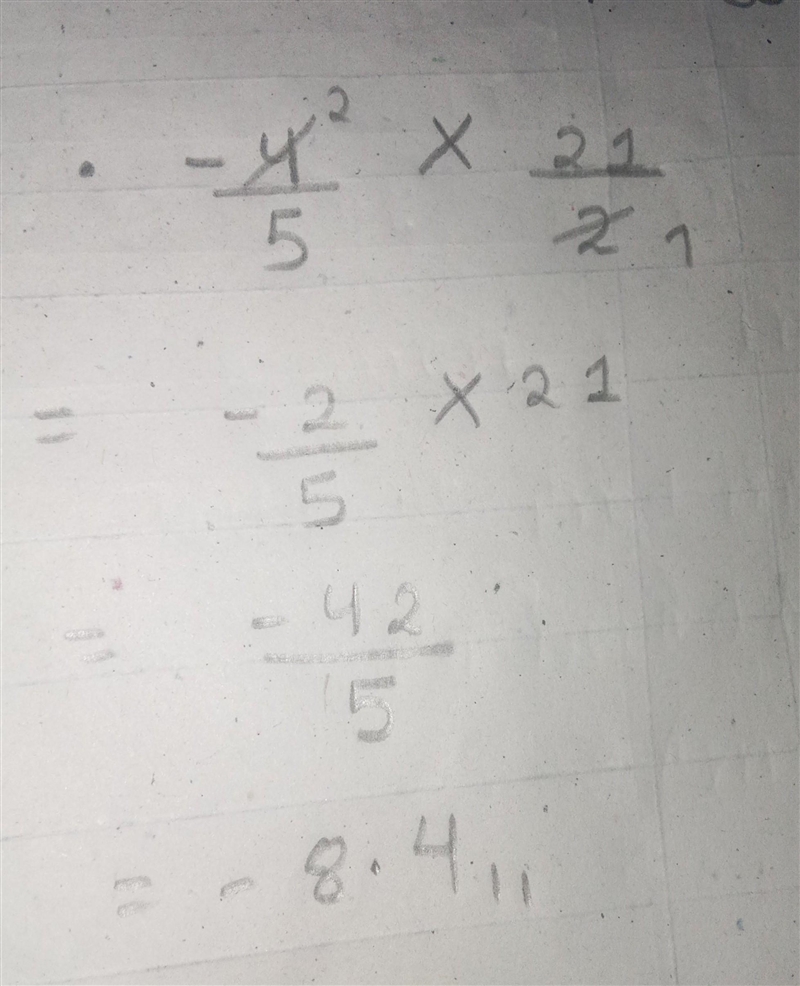 . -4/5 2 × 21/2 1
= -2/5 × 21
= -42/5
= -8.4 ,,